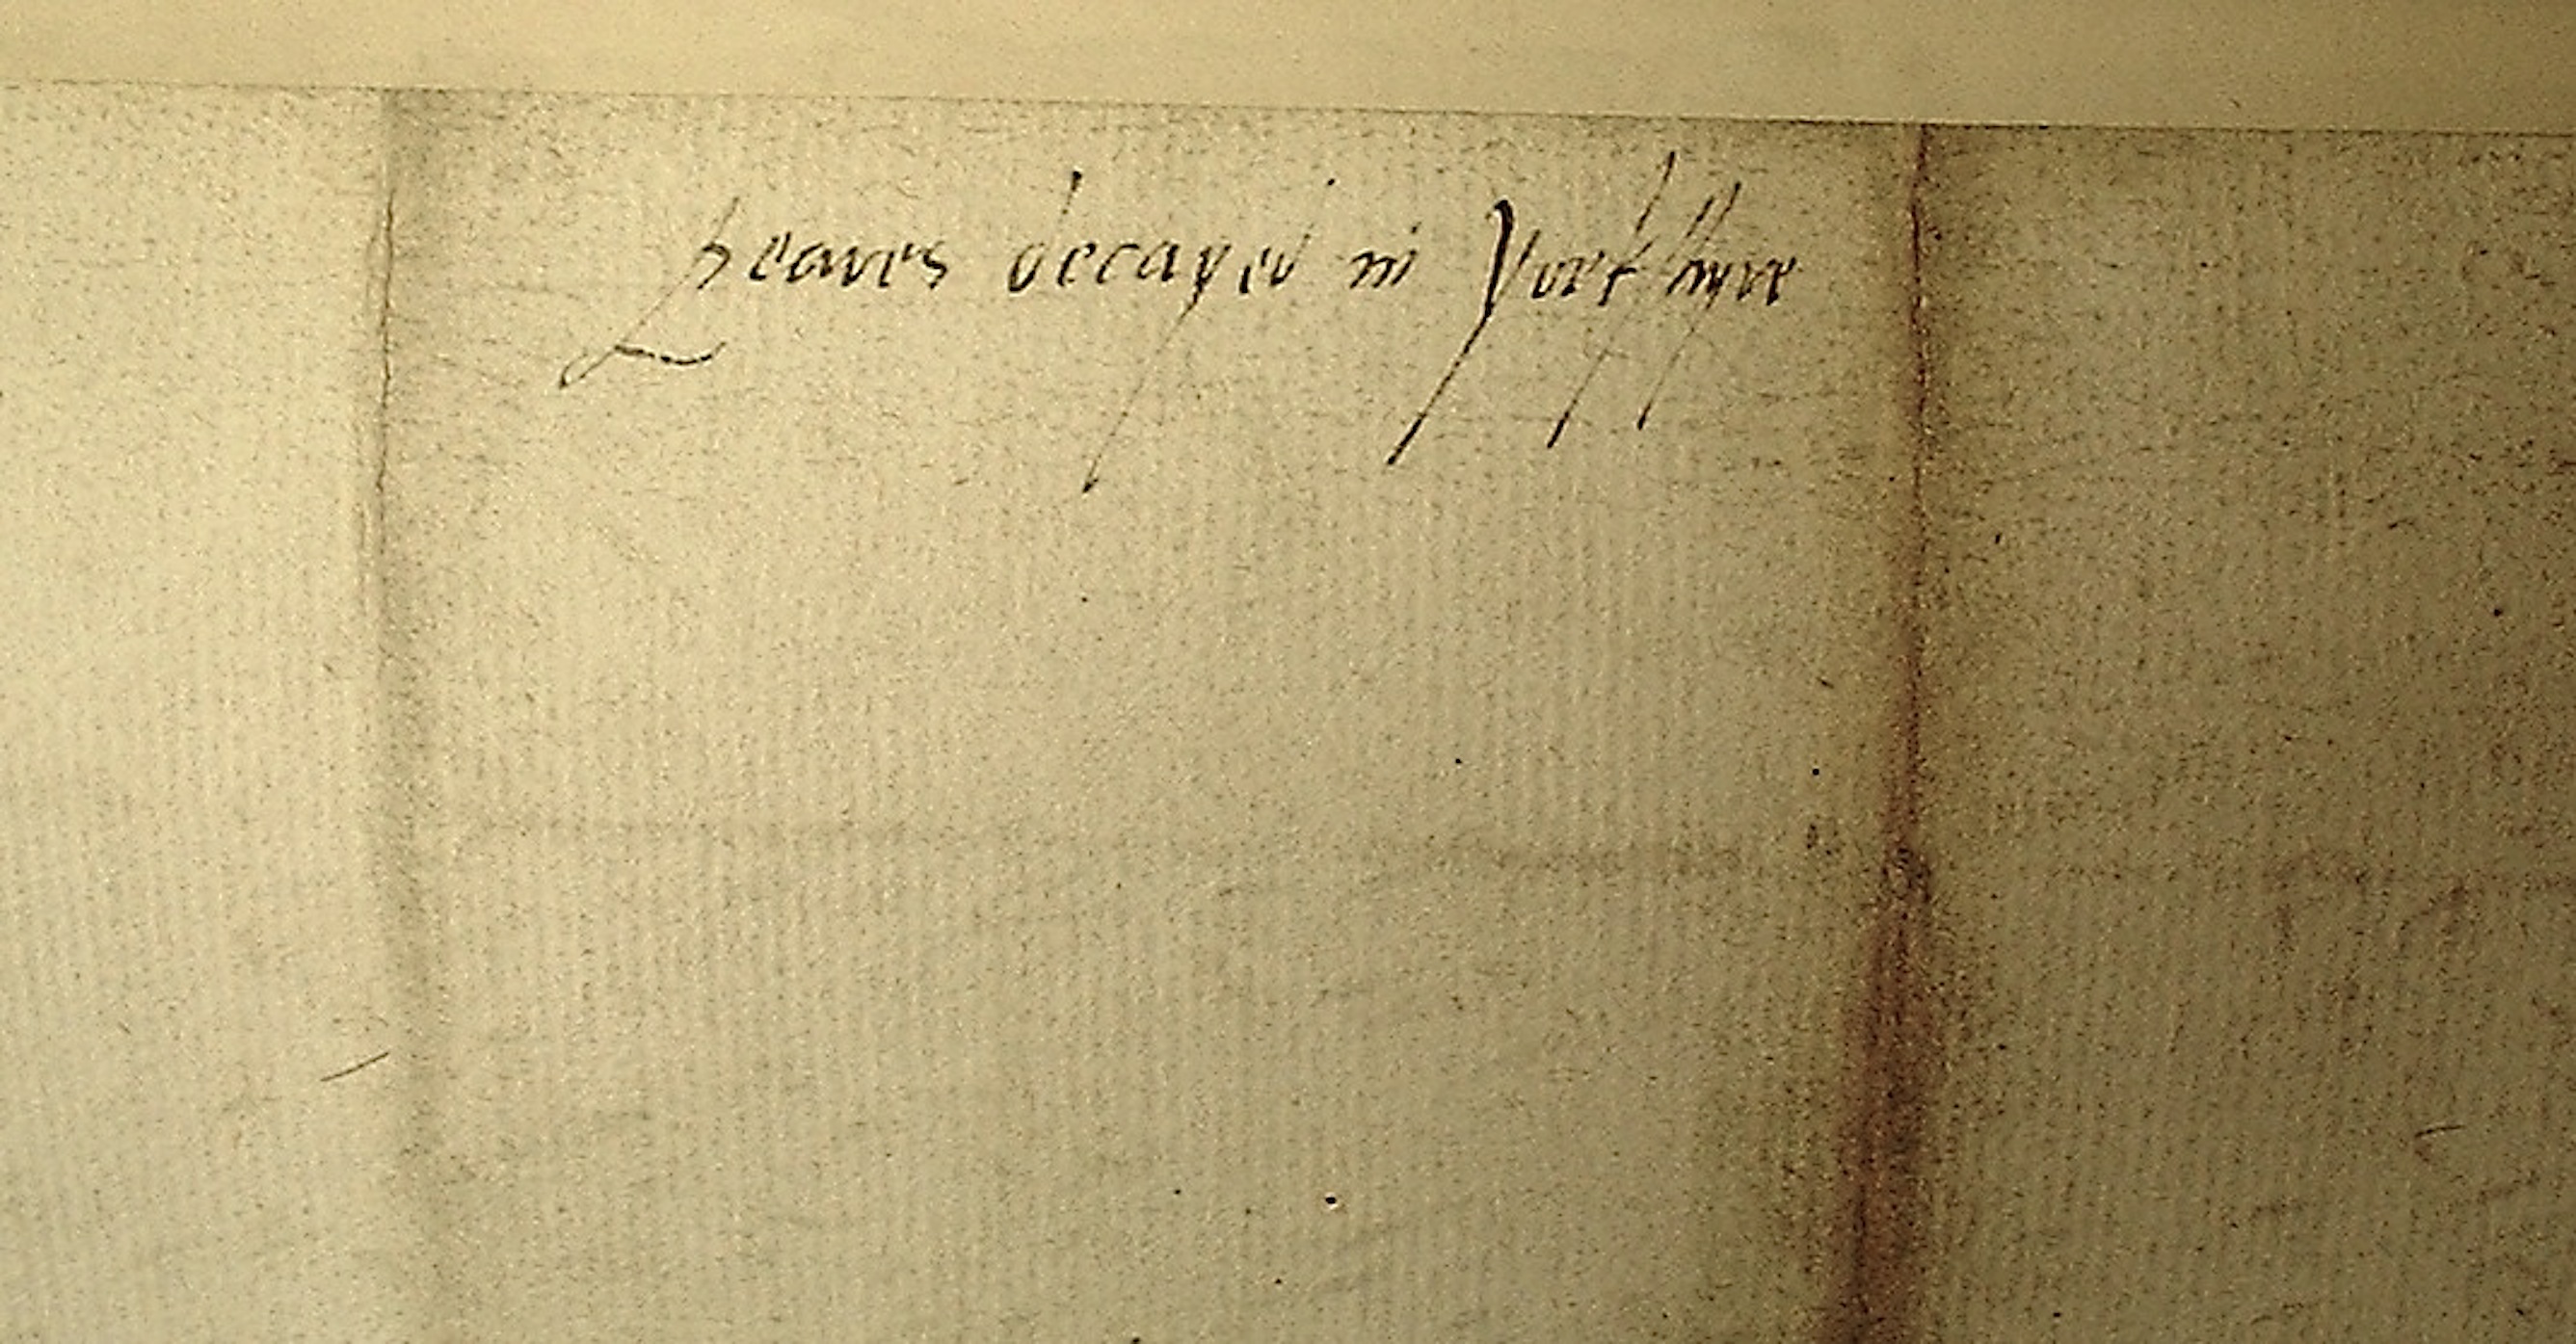 Leaves decayed in Yorkshyre